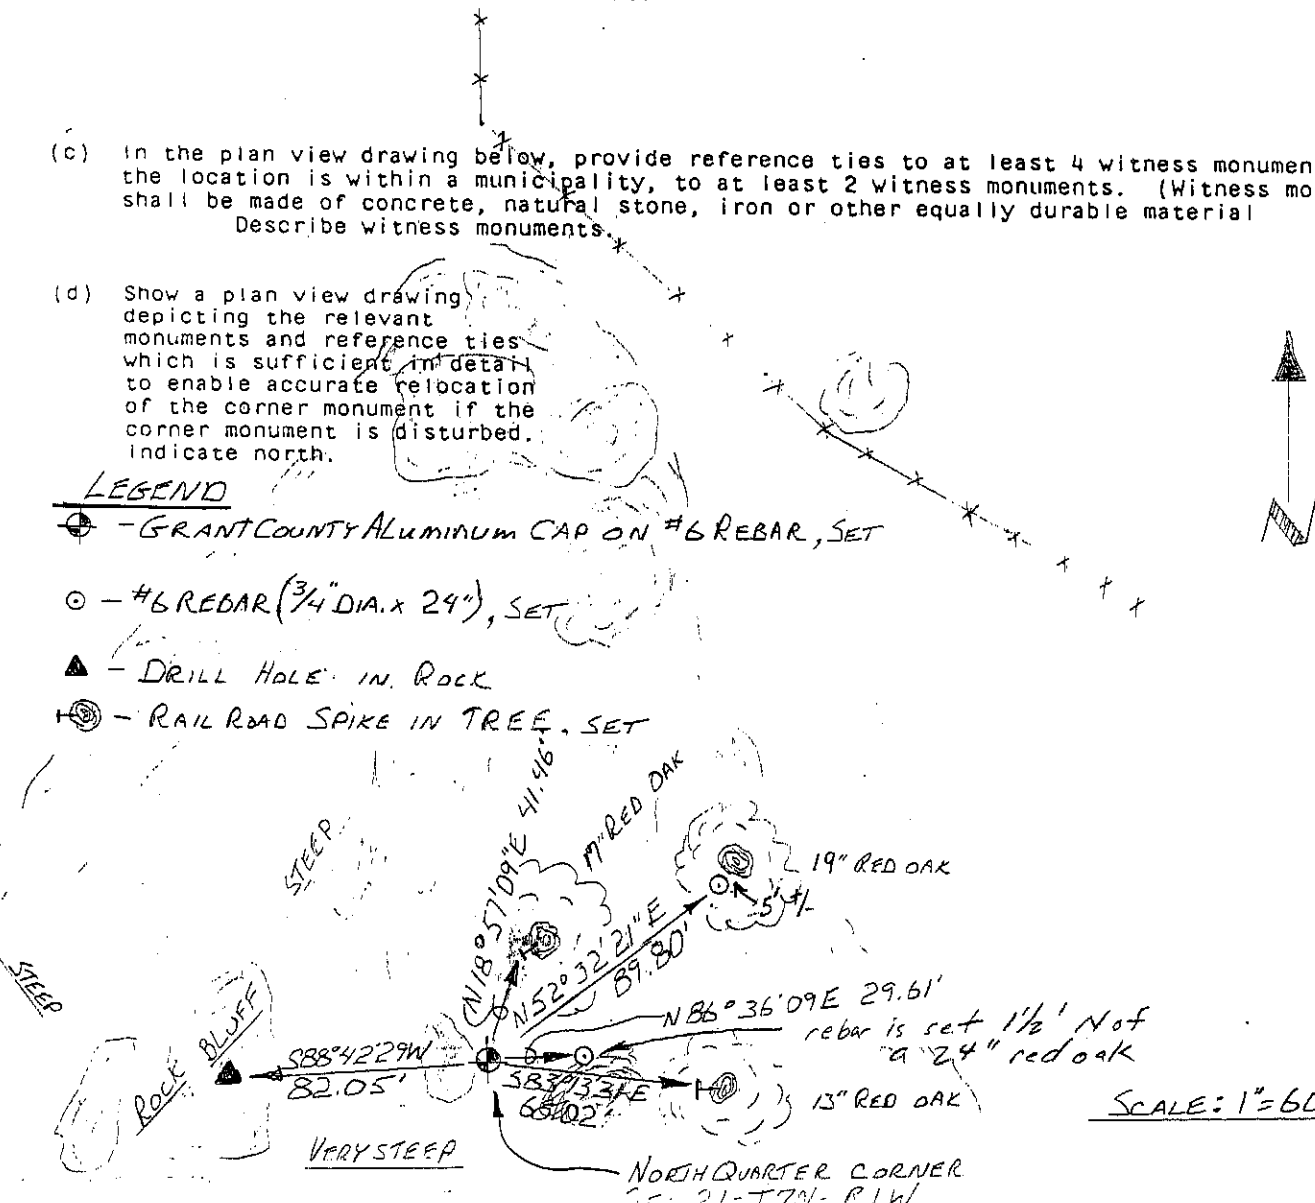 (c) In the plan view drawing below, provide reference ties to at least 4 witness monumen
the location is within a municipality, to at least 2 witness monuments. (Witness mo
shall be made of concrete, natural stone, iron or other equally durable material
Describe witness monuments.
(d) Show a plan view drawing
depicting the relevant
monuments and reference ties
which is sufficient in detail
to enable accurate relocation
of the corner monument if the
corner monument is disturbed.
Indicate north.
N
LEGEND
- GRANT COUNTY ALUMINUM CAP ON #6 REBAR, SET
- #6 REBAR (3/4" DIA. x 24"), SET
- DRILL HOLE IN ROCK
- RAIL ROAD SPIKE IN TREE, SET
STEEP
N18°57'09"E 41.46'
17" RED OAK
19" RED OAK
5' +/-
N52°32'21"E
89.80'
STEEP
ROCK BLUFF
N86°36'09E 29.61'
rebar is set 1½' N of
a 24" red oak
S88°42'29W
82.05'
13" RED OAK
SCALE: 1"=60
VERY STEEP
NORTH QUARTER CORNER
21-T7N-R1W